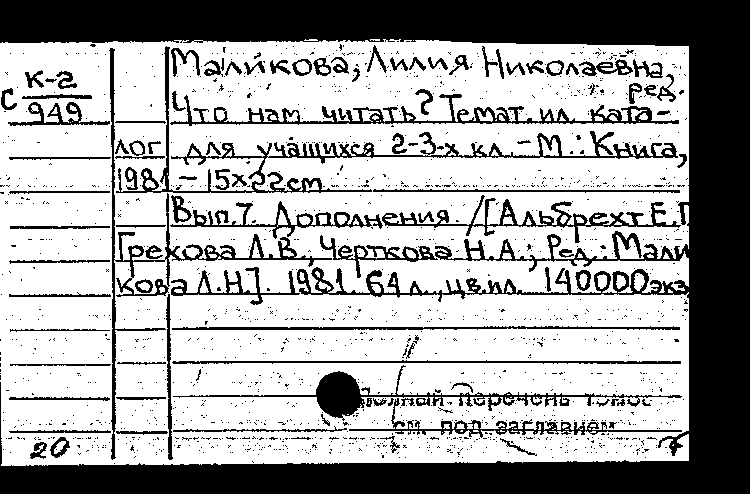 Маликова, Лилия Николаевна,
ред.
К-2
С 949
Что нам читать? Темат. ил. ката-
лог для учащихся 2-3-х кл. - М.: Книга,
1981 - 15х22см
Вып.7. Дополнения. /[Альбрехт Е.П
Грехова Л.В., Черткова Н.А.; Ред.: Мали
кова Л.Н.]. 1981. 64 л., цв.ил. 140000экз
Полный перечень томов
см. под заглавием
20